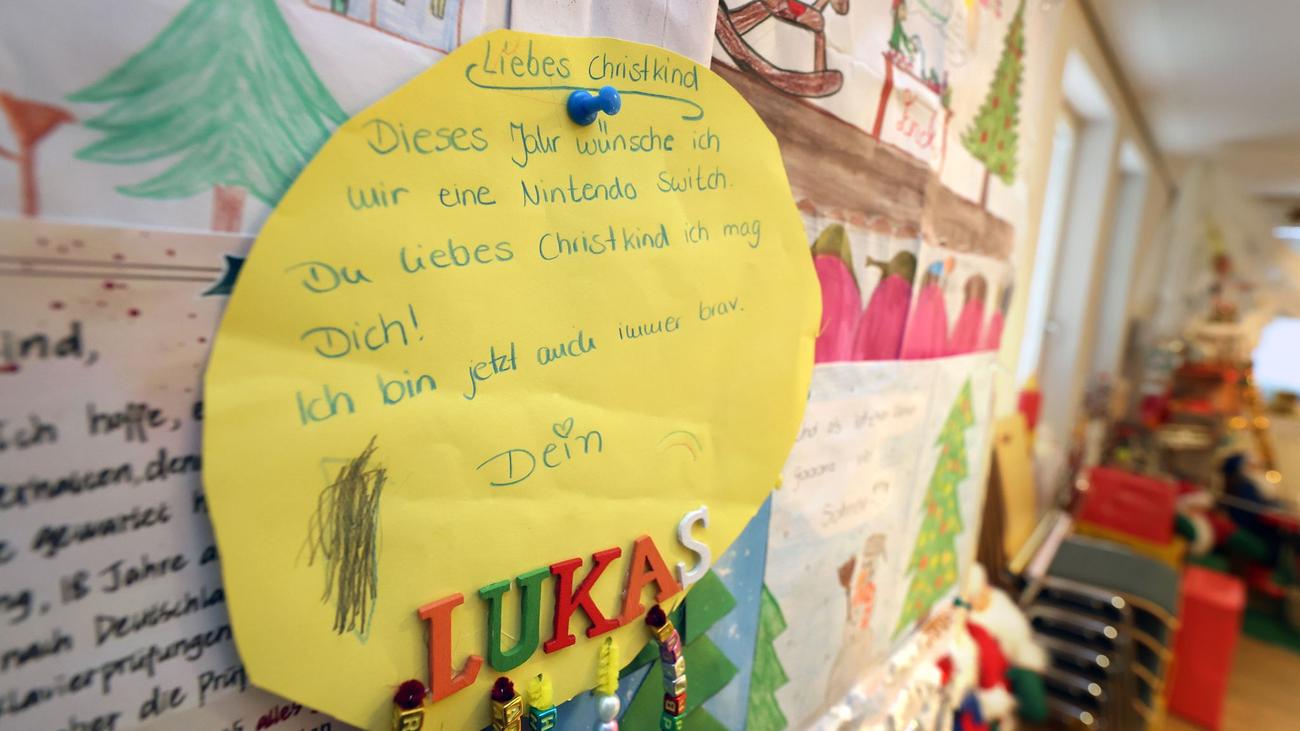 Liebes Christkind
Dieses Jahr wünsche ich
mir eine Nintendo Switch.
Du liebes Christkind ich mag
Dich!
Ich bin jetzt auch immer brav.
Dein
LUKAS
ind,
Ich hoffe,
gewartet
18 Jahre
nach Deutschla
klavierprüfungen
ber die Prüf
alles